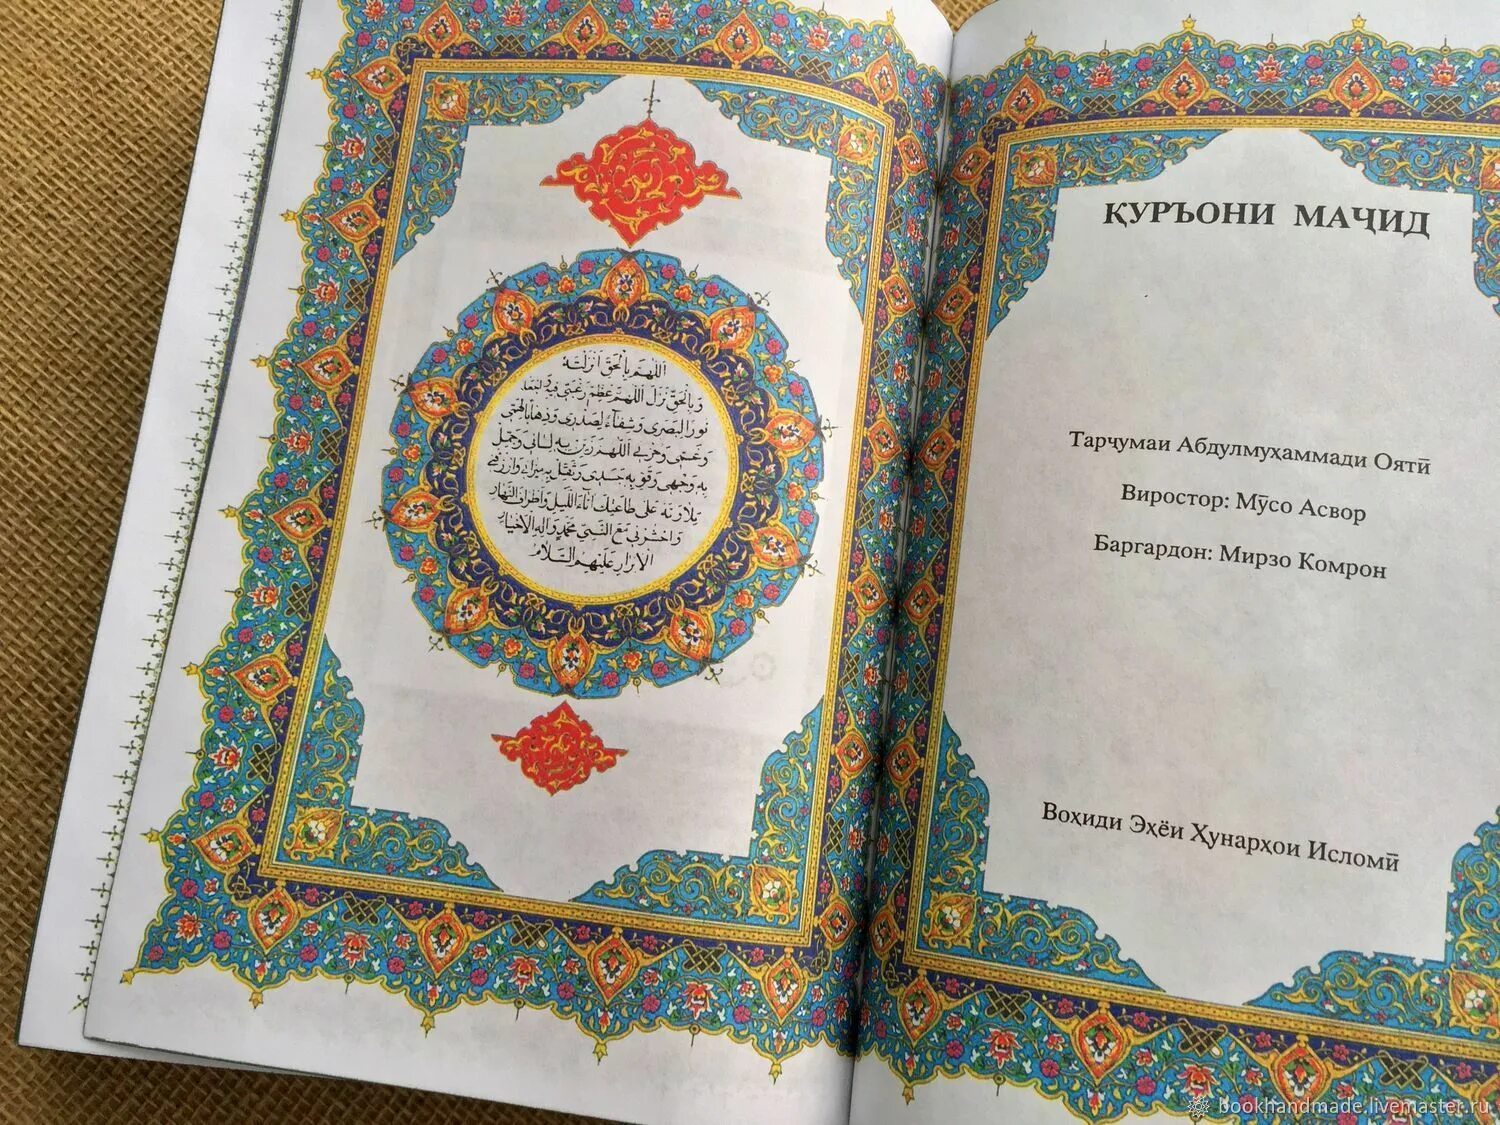 اللهم بالحق انزلته
وبالحق نزل اللهم عظم رغبتی فیه واجعله
نورا لبصری وشفاء لصدری وذهابا لهمی
وغمی وحزنی اللهم زین به لسانی وجمل
به وجهی وقو به جسدی وثقل به میزانی وارزقنی
تلاوته علی طاعتك اناء اللیل واطراف النهار
واحشرنی مع النبی محمد واله الاخیار
الابرار علیهم السلام
ҚУРЪОНИ МАҶИД
Тарҷумаи Абдулмуҳаммади Оятӣ
Виростор: Мӯсо Асвор
Баргардон: Мирзо Комрон
Воҳиди Эҳёи Ҳунарҳои Исломӣ
bookhandmade.livemaster.ru